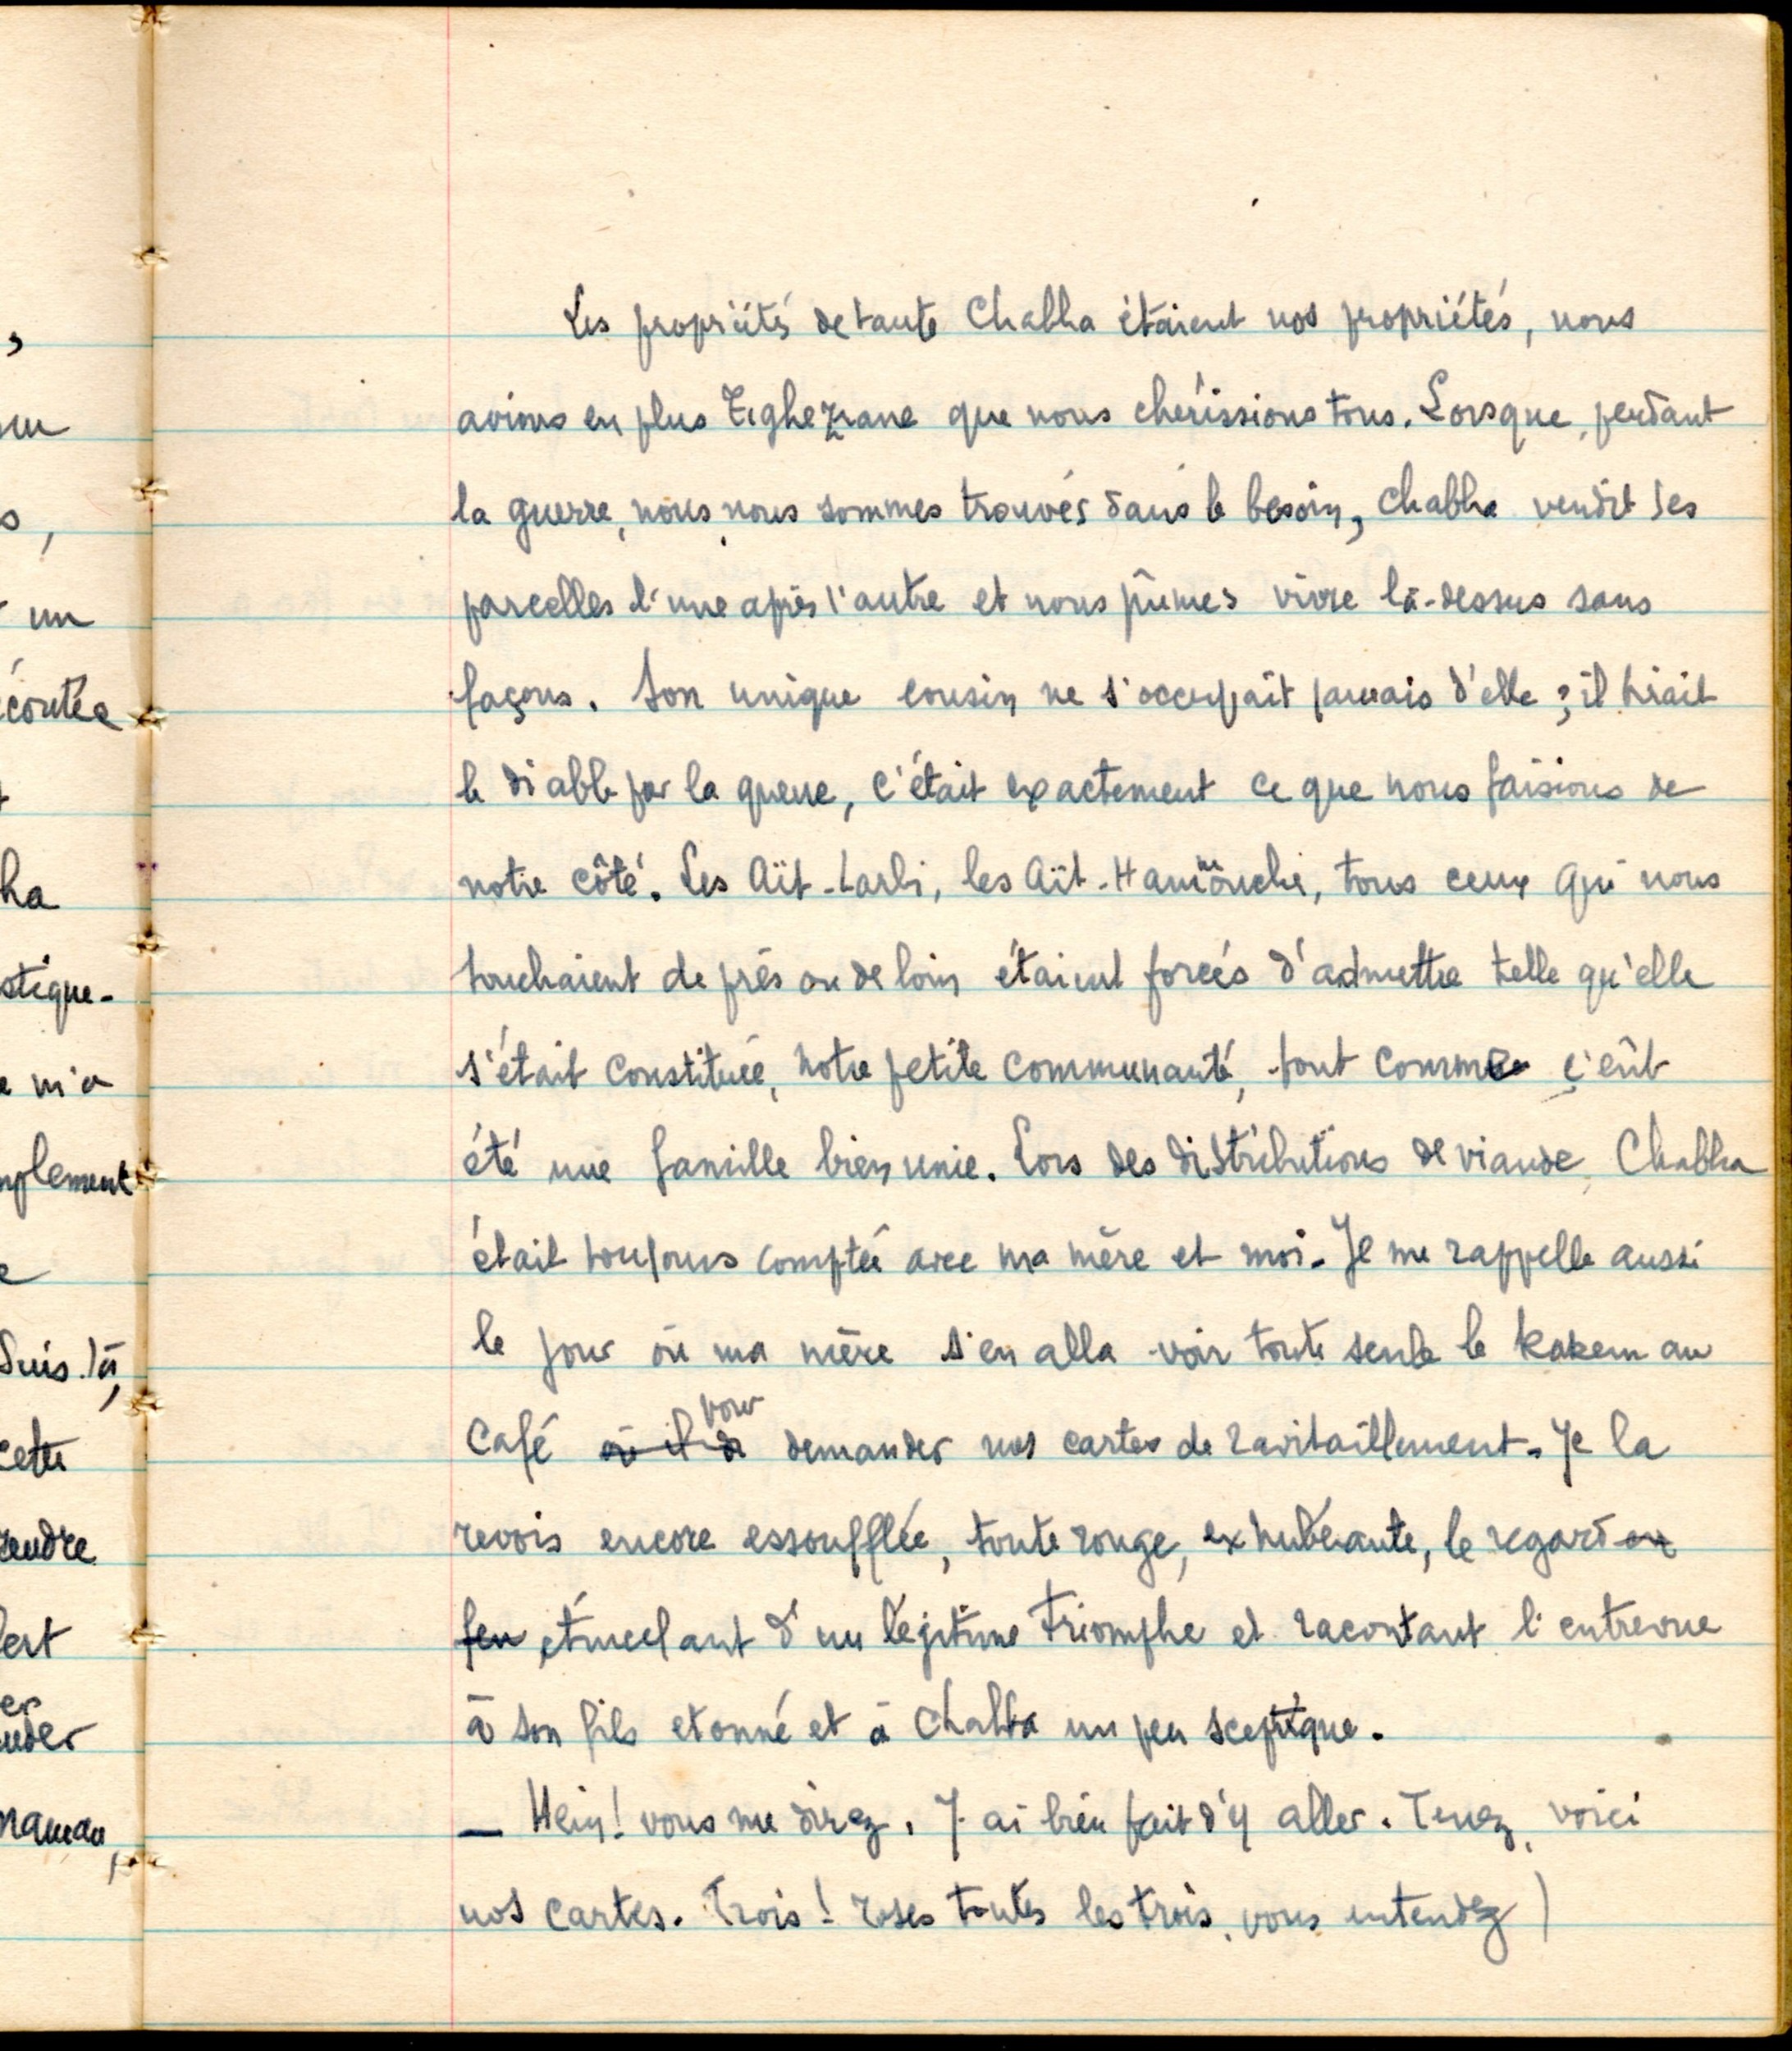 Les propriétés de tante Chabha étaient nos propriétés, nous
avions en plus Tighezrane que nous chérissions tous. Lorsque, pendant
la guerre, nous nous sommes trouvés dans le besoin, Chabha vendit ses
parcelles l'une après l'autre et nous pûmes vivre là-dessus sans
façons. Son unique cousin ne s'occupait jamais d'elle ; il tirait
le diable par la queue, c'était exactement ce que nous faisions de
notre côté. Les Aït-Larbi, les Aït-Hamouche, tous ceux qui nous
touchaient de près ou de loin étaient forcés d'admettre telle qu'elle
s'était constituée, notre petite communauté, tout comme ç'eût
été une famille bien unie. Lors des distributions de viande, Chabha
était toujours comptée avec ma mère et moi. Je me rappelle aussi
le jour où ma mère s'en alla voir toute seule le kakem au
café où il de pour demander nos cartes de ravitaillement. Je la
revois encore essoufflée, toute rouge, exhubérante, le regard en
feu étincelant d'un légitime triomphe et racontant l'entrevue
à son fils etonné et à Chabha un peu sceptique.
— Hein! vous me direz. J'ai bien fait d'y aller. Tenez, voici
nos cartes. Trois! roses toutes les trois, vous entendez
,
s,
un
écoutée
ha
stique-
m'a
mplement
e
suis là,
cette
rendre
er